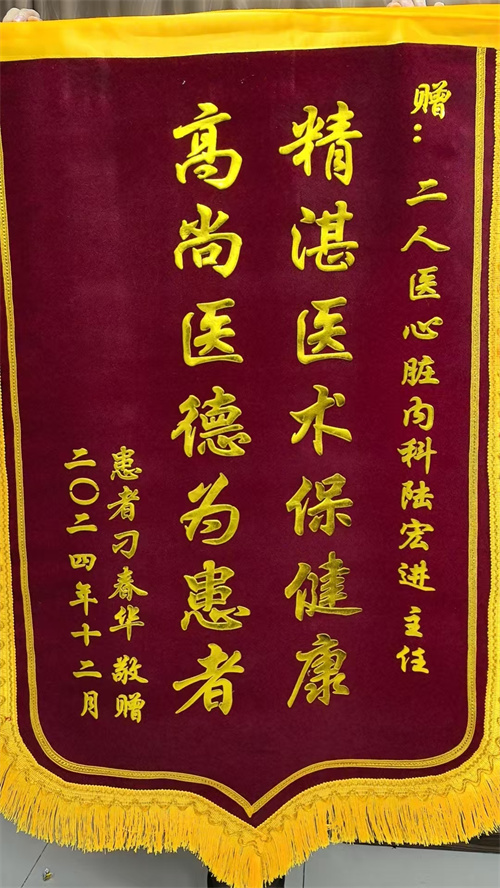 赠：二人医心脏内科陆宏进主任
精湛医术保健康
高尚医德为患者
患者刁春华敬赠
二〇二四年十二月